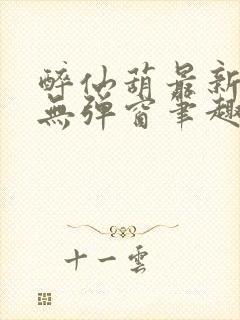 醉仙葫最新
無彈窗筆趣
十一雲